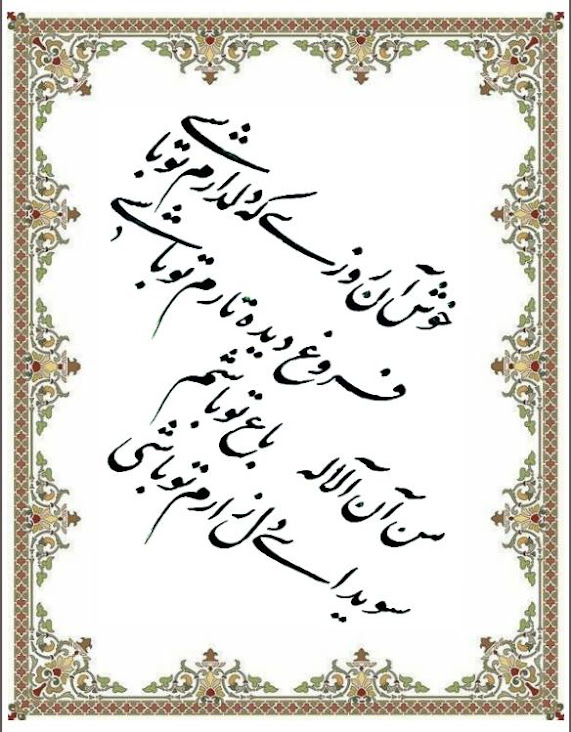 خوش آن روزی که دلدارم تو باشی
فروغ دیده تارم تو باشی
من آن آلاله باغ تو باشم
سویدای دل زارم تو باشی